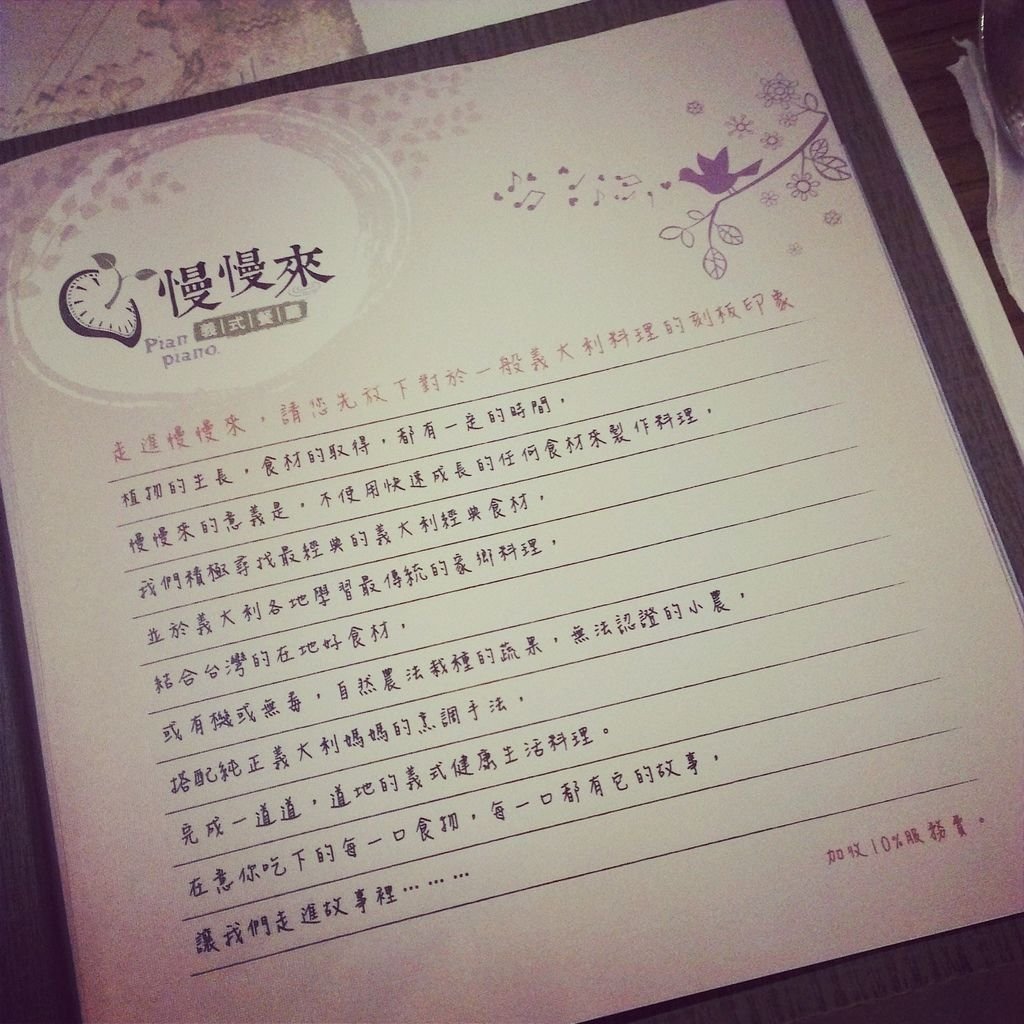 慢慢來
義式餐廳
Pian
piano.
走進慢慢來，請您先放下對於一般義大利料理的刻板印象
植物的生長，食材的取得，都有一定的時間，
慢慢來的意義是，不使用快速成長的任何食材來製作料理，
我們積極尋找最經典的義大利經典食材，
並於義大利各地學習最傳統的家鄉料理，
結合台灣的在地好食材，
或有機或無毒，自然農法栽種的蔬果，無法認證的小農，
搭配純正義大利媽媽的烹調手法，
完成一道道，道地的義式健康生活料理。
在意你吃下的每一口食物，每一口都有它的故事，
讓我們走進故事裡………
加收10%服務費。